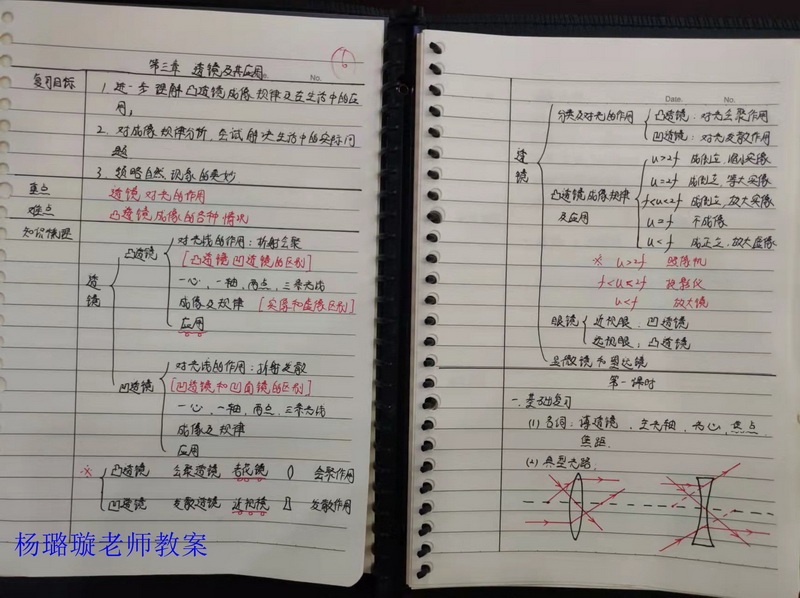 第三章 透镜及其应用
No.
复习目标
1. 进一步理解凸透镜成像规律及在生活中的应
用;
2. 对成像规律分析,尝试解决生活中的实际问
题
3. 领略自然现象的美妙
重点
透镜对光的作用
难点
凸透镜成像的各种情况
知识梳理
透镜
凸透镜
对光线的作用:折射会聚
[凸透镜凹透镜的区别]
一心,一轴,两点,三条光线
成像及规律 [实像和虚像区别]
应用
凹透镜
对光线的作用:折射发散
[凹透镜和凹面镜的区别]
一心,一轴,两点,三条光线
成像及规律
应用
※ 凸透镜 会聚透镜 老花镜 会聚作用
凹透镜 发散透镜 近视镜 发散作用
杨璐璇老师教案
Date. No.
透镜
分类及对光的作用
凸透镜:对光会聚作用
凹透镜:对光发散作用
凸透镜成像规律
及应用
u>2f 成倒立,缩小实像
u=2f 成倒立,等大实像
f<u<2f 成倒立,放大实像
u=f 不成像
u<f 成正立,放大虚像
※ u>2f 照像机
f<u≤2f 投影仪
u<f 放大镜
眼镜
近视眼:凹透镜
远视眼:凸透镜
显微镜和望远镜
第一课时
一.基础复习
(1) 名词:薄透镜,主光轴,光心,焦点
焦距.
(2) 典型光路.